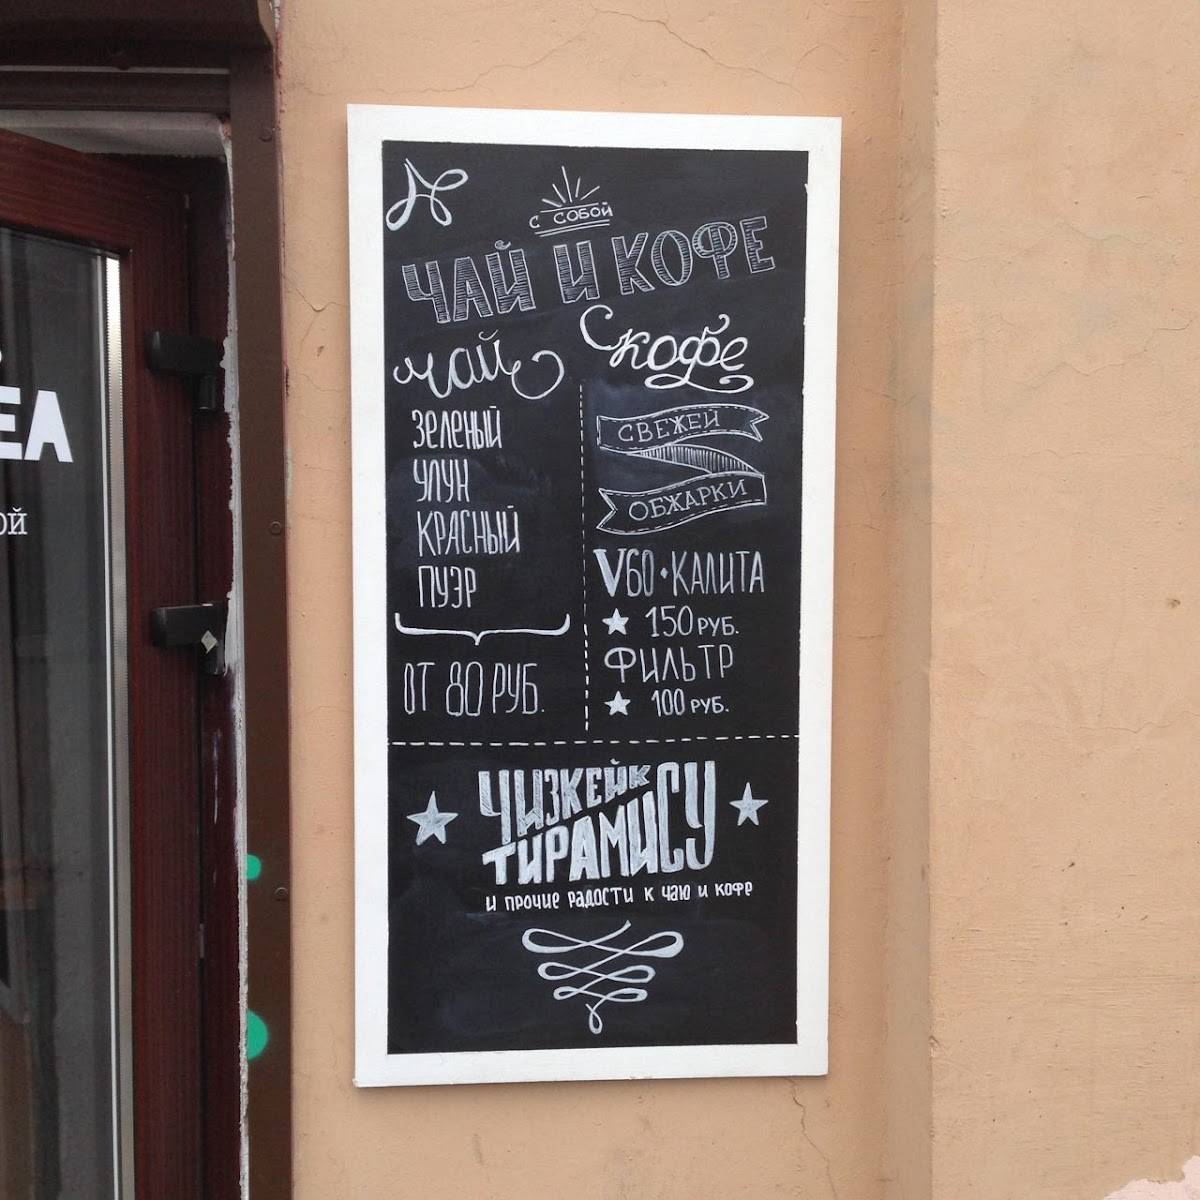 С СОБОЙ
ЧАЙ И КОФЕ
чай
ЗЕЛЕНЫЙ
УЛУН
КРАСНЫЙ
ПУЭР
ОТ 80 РУБ.
кофе
СВЕЖЕЙ
ОБЖАРКИ
V60 • КАЛИТА
★ 150 РУБ.
ФИЛЬТР
★ 100 РУБ.
ЧИЗКЕЙК
ТИРАМИСУ
и прочие радости к чаю и кофе